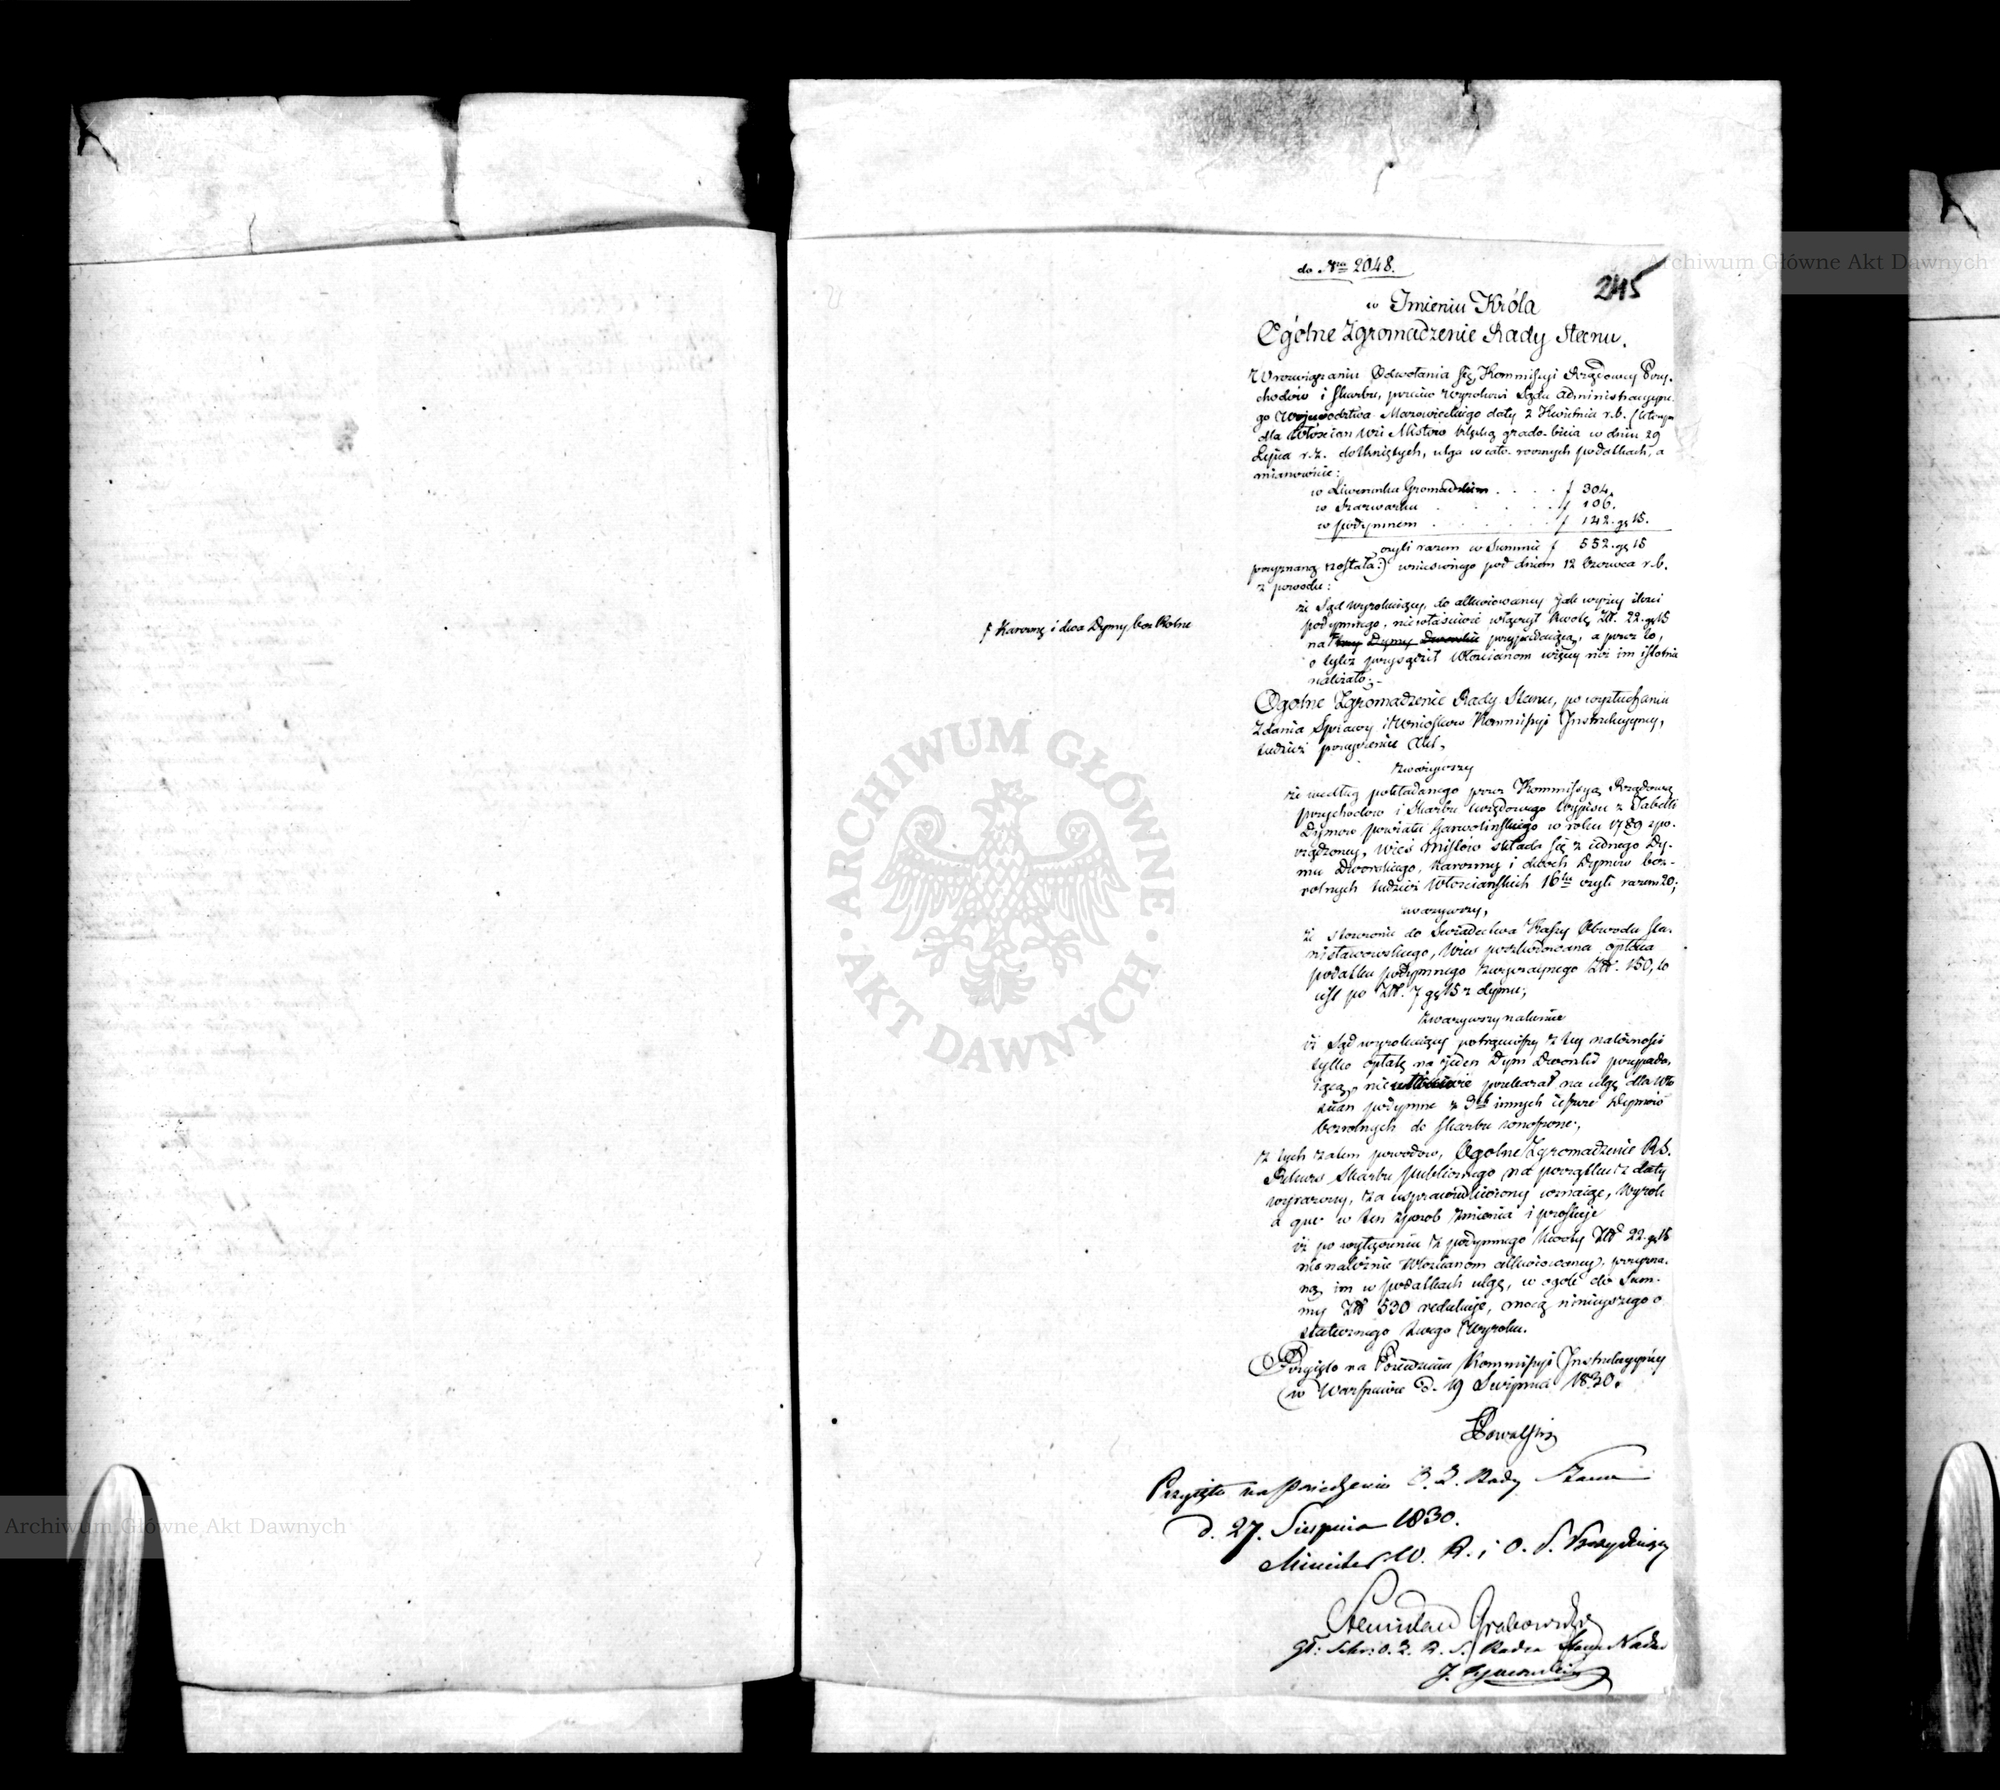 do Nro 2048.
245
w Imieniu Króla
Ogólne Zgromadzenie Rady Stanu.
W rozwiązaniu Odwołania się Kommissyi Rządowey Przy-
chodów i Skarbu, przeciw Wyrokowi Sądu Administracyine-
go Województwa Mazowieckiego daty 2 Kwietnia r.b.
dla Włościan Wsi Mistów klęską grado-bicia w dniu 29
Lipca r.z. dotkniętych, ulga w cało-rocznych podatkach, a
mianowicie:
w Liwerunku Gromadzkim . . . . f 304.
w Szarwarku . . . . f 106.
w podymnem . . . . f 142. gr 15.
czyli razem w Summie f 552. gr 15
przyznaną została:) wniesionego pod dniem 12 Czerwca r.b.
z powodu:
że Sąd wyrokuiący, do allewiowaney jak wyżey ilości
podymnego, niewłaściwie włączył kwotę Złł. 22. gr 15
na trzy Dymy Dworskie przypadaiącą, a przez to,
o tyleż przysądził Włościanom więcey niż im istotnie
należało;-
f Karczmę i dwa Dymy bez Rolne
Ogólne Zgromadzenie Rady Stanu, po wysłuchaniu
Zdania Sprawy i Wniosków Kommissyi Instrukcyiney,
tudzież przeyrzeniu Akt,
zważywszy
że według pokładanego przez Kommissyą Rządową
przychodów i Skarbu urzędowego Wypisu z Tabelli
Dymów powiatu Garwolińskiego w roku 1789 spo-
rządzoney, Wieś Mistów składa się z iednego Dy-
mu Dworskiego, Karczmy i dwóch Dymów bez-
rolnych tudzież Włościańskich 16tu czyli razem 20;
zważywszy,
że stosownie do Świadectwa Kassy Obwodu Sta-
nisławowskiego, Wieś poszkodowana opłaca
podatku podymnego zwyczaynego Złł. 150, to
iest po Złł. 7 gr 15 z dymu;
zważywszy nakoniec
iż Sąd wyrokuiący potrąciwszy z tey należności
tylko opłatę na jeden Dym Dworski przypada-
iącą, niewłaściwie przekazał na ulgę dla Wło-
ścian podymne z 3ch innych ieszcze Dymów
bezrolnych do Skarbu wnoszone;
z tych zatem powodów, Ogólne Zgromadzenie R.S.
Rekurs Skarbu publicznego na początku z daty
wyrażony, za usprawiedliwiony uznaiąc, Wyrok
a quo w ten sposób zmienia i prostuje
iż po wyłączeniu z podymnego kwoty Złł 22. gr 15
nienależnie Włościanom allewiowaney, przyzna-
ną im w podatkach ulgę, w ogóle do Sum-
my Złł 530 redukuje, mocą ninieyszego o-
statecznego swego Wyroku.
Przyięto na Posiedzeniu Kommissyi Instrukcyiney
w Warszawie d. 19 Sierpnia 1830.
Przyięto na Posiedzeniu O. Z. Rady Stanu
d. 27. Sierpnia 1830.
Minister W. R. i O. P. Prezyduiący
Stanisław Grabowski
Archiwum Główne Akt Dawnych
ARCHIWUM GŁÓWNE
AKT DAWNYCH
Archiwum Główne Akt Dawnych